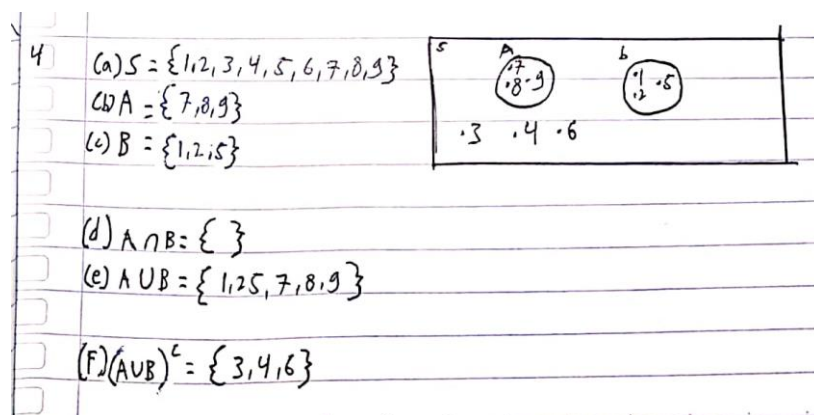 4
(a) S = {1,2,3,4,5,6,7,8,9}
(b) A = {7,8,9}
(c) B = {1,2,5}
S A b
.7
.8 .9
.1 .5
.2
.3 .4 .6
(d) A ∩ B = { }
(e) A ∪ B = {1,25,7,8,9}
(F) (A∪B)ᶜ = {3,4,6}